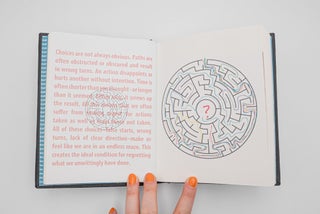 Choices are not always obvious. Paths are
often obstructed or obscured and result
in wrong turns. An action disappoints or
hurts another without intention. Time is
often shorter than we thought—or longer
than it seemed.
the result. All this means that we often
suffer from regret for actions
taken as well as those not taken.
All of these choices—false starts, wrong
turns, lack of clear direction—make us
feel like we are in an endless maze. This
creates the ideal condition for regretting
what we unwittingly have done.
?